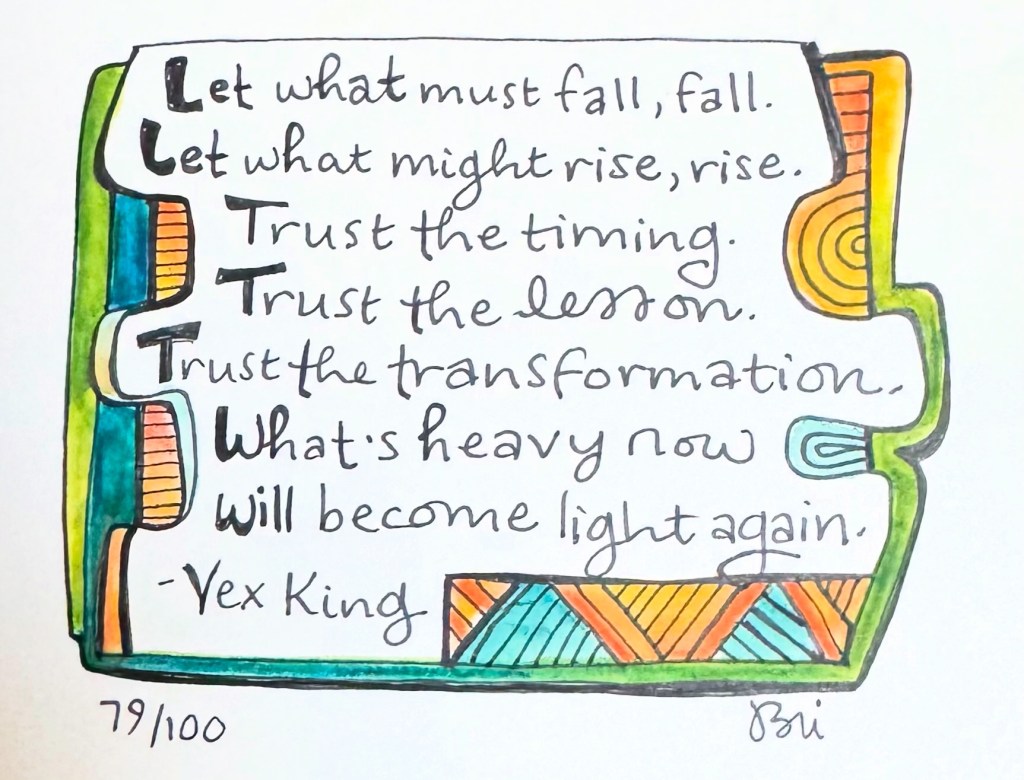 Let what must fall, fall.
Let what might rise, rise.
Trust the timing.
Trust the lesson.
Trust the transformation.
What's heavy now
will become light again.
-Vex King
79/100
Bri